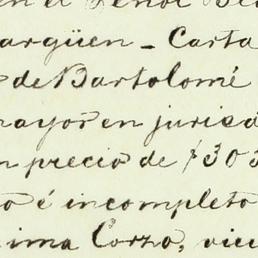 en el Señor
argüen - Carta
de Bartolomé
mayor en juris
n precio de $303
o é incompleto
ima Corzo, vice